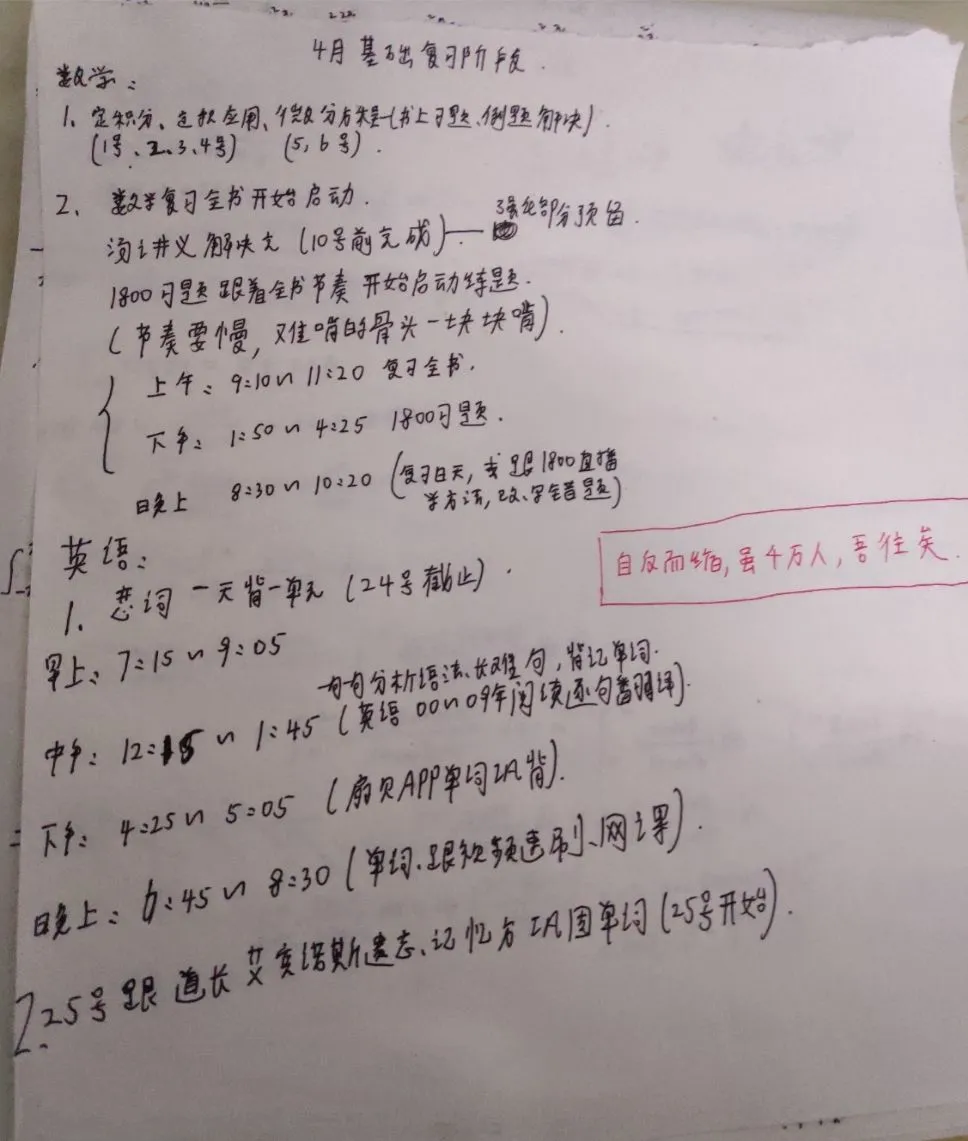 4月基础复习阶段.
数学:
1、定积分、定积应用、微分方程(书上习题、例题解决).
(1号、2、3、4号) (5,6号).
2、数学复习全书开始启动.
汤讲义解决完(10号前完成)—强化部分预留.
1800习题跟着全书节奏开始启动练题.
(节奏要慢,难啃的骨头一块块啃).
上午:9:10~11:20 复习全书.
下午:1:50~4:25 1800习题.
晚上 8:30~10:20 (复习白天,或跟1800直播
学方法,改、学错题)
英语:
自反而缩,虽千万人,吾往矣.
1、恋词 一天背一单元(24号截止).
早上:7:15~9:05
一句句分析语法、长难句,背记单词.
中午:12:15~1:45(英语00~09年阅读逐句翻译).
下午:4:25~5:05(扇贝APP单词巩背).
晚上:6:45~8:30(单词、跟视频速刷、网课).
2、25号跟道长艾宾诺斯遗忘、记忆方巩固单词(25号开始).